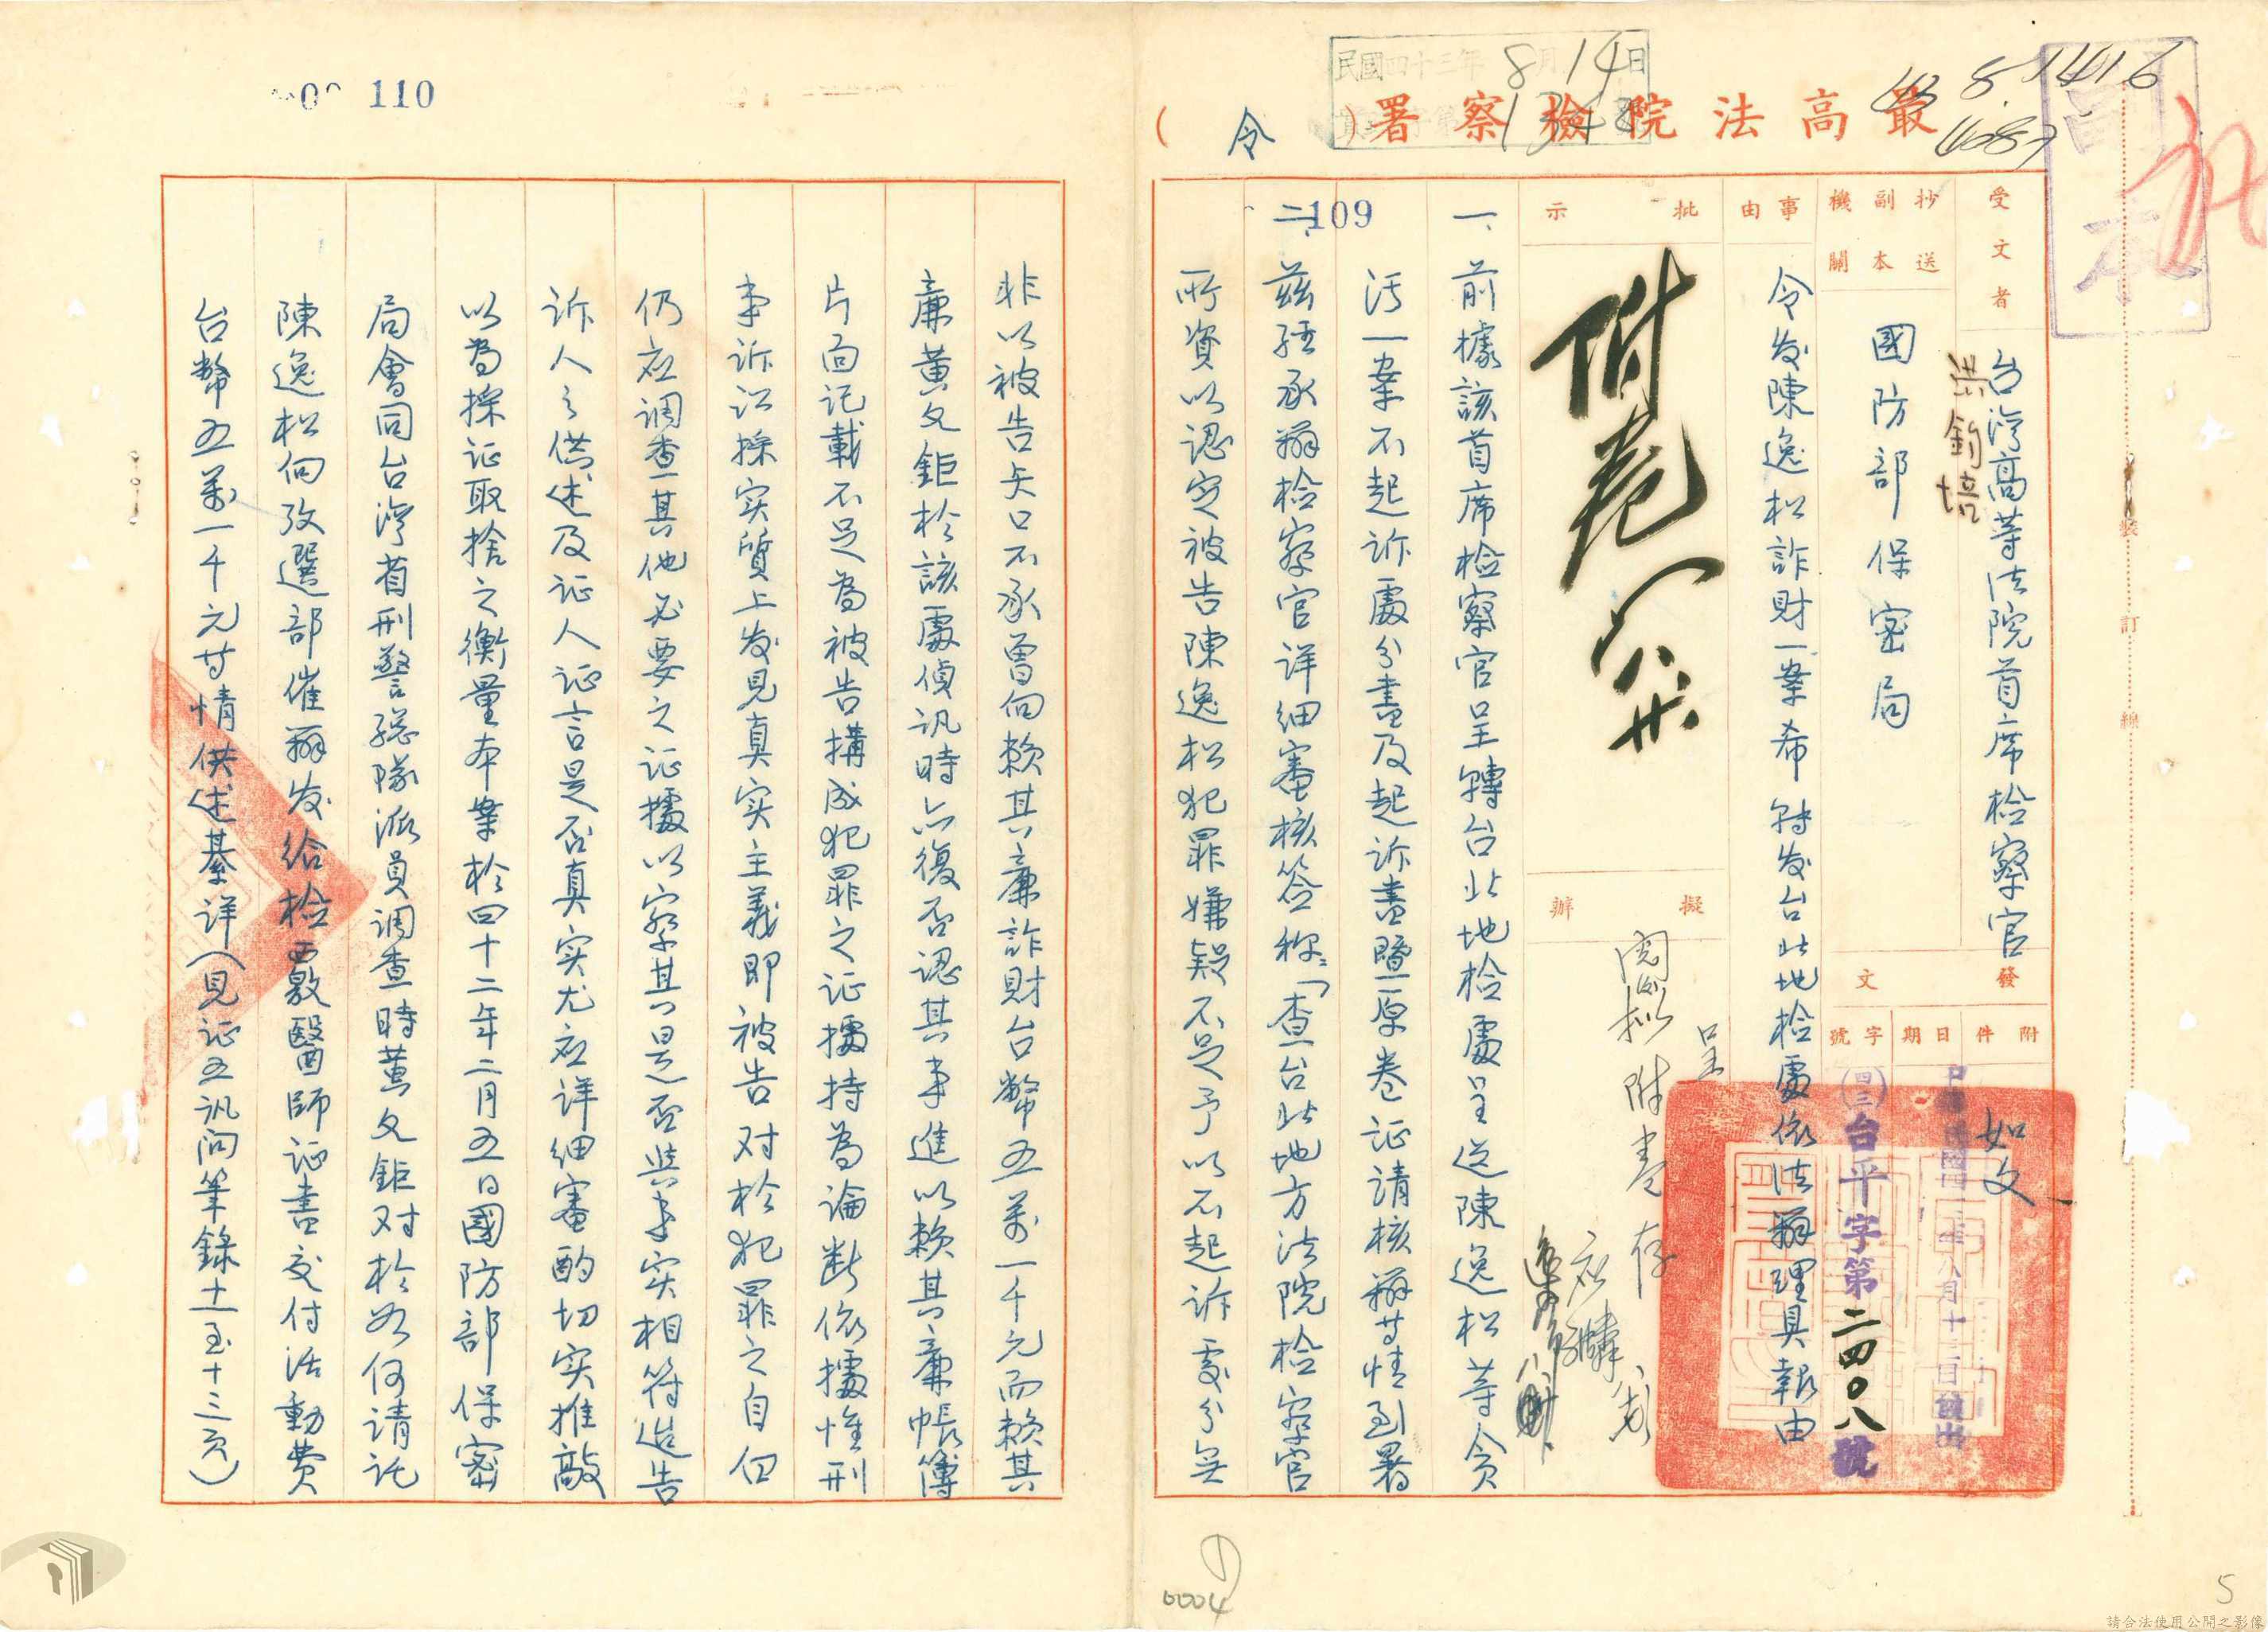 最高法院檢察署（令）
副本
民國四十三年8月14日
受文者
台灣高等法院首席檢察官
洪鈞培
抄送副本機關
國防部保密局
事由
令发陳逸松詐財一案希轉发台北地檢處依法辦理具報由
發文
附件
如文
日期
字號
(四三)台平字第二四〇八號
批示
附卷
擬辦
閱擬附卷存
呈
一、前據該首席檢察官呈轉台北地檢處呈送陳逸松等貪
污一案不起訴處分書及起訴書暨原卷证請核辦等情到署
二、茲經承辦检察官详细審核签称：「查台北地方法院检察官
所資以認定被告陳逸松犯罪嫌疑不足予以不起訴處分无
非以被告矢口不承曾向賴其廉詐財台幣五萬一千元而賴其
廉黃文鉅於該處偵讯時亦復否認其事進以賴其廉帳簿
片面记載不足為被告構成犯罪之证據持為論断依據惟刑
事訴讼採实質上发見真实主義即被告对於犯罪之自白
仍应調查其他必要之证據以察其是否與事实相符造告
訴人之供述及证人证言是否真实尤应详细審酌切实推敲
以為採证取捨之衡量本案於四十二年二月五日國防部保密
局會同台灣省刑警總隊派員調查時黃文鉅对於如何請託
陳逸松向攷選部催辦发给检覈醫師证書交付活動費
台幣五萬一千元等情供述綦详（見证五讯问筆錄十一至十三页）
109
110
0004
5
請合法使用公開之影像